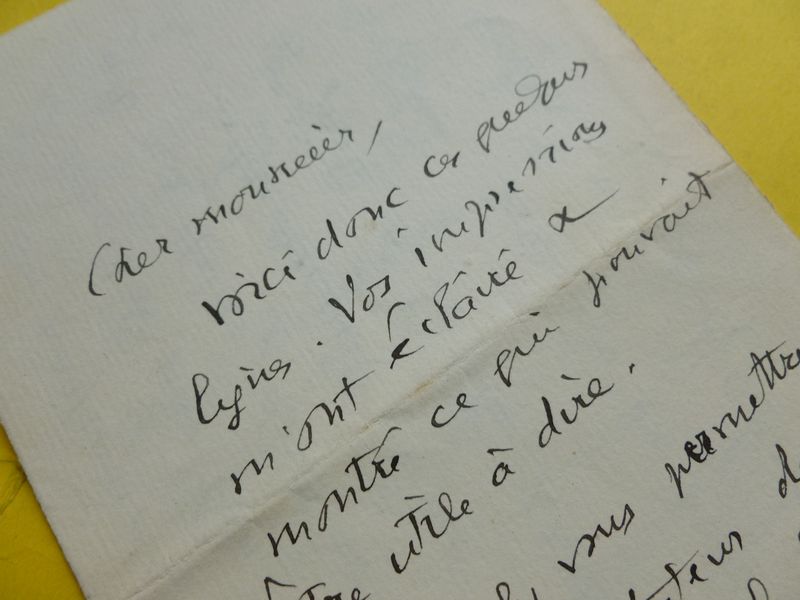 Cher monsieur,
voici donc ces quelques
lignes. Vos impressions
m'ont éclairé &
montré ce qui pouvait
être utile à dire.
vous permettre